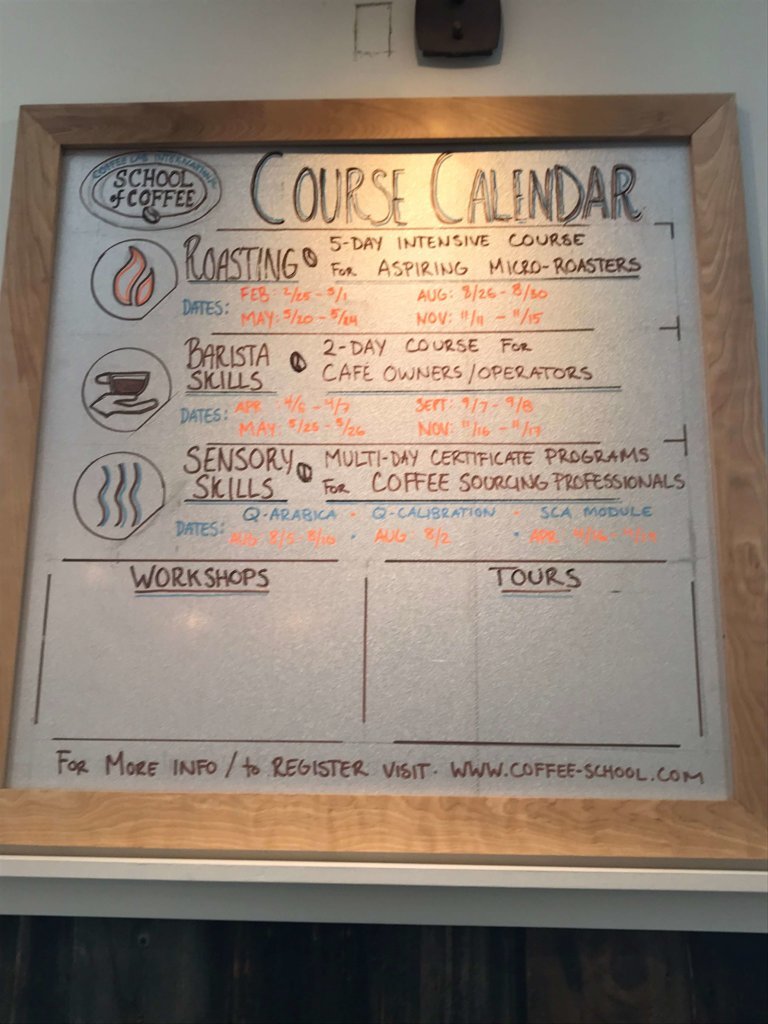 COFFEE LAB INTERNATIONAL
SCHOOL
of COFFEE
COURSE CALENDAR
ROASTING 5-DAY INTENSIVE COURSE
FOR ASPIRING MICRO-ROASTERS
DATES: FEB: 2/25 - 3/1 AUG: 8/26 - 8/30
MAY: 5/20 - 5/24 NOV: 11/11 - 11/15
BARISTA SKILLS 2-DAY COURSE FOR
CAFÉ OWNERS/OPERATORS
DATES: APR 4/6 - 4/7 SEPT: 9/7 - 9/8
MAY 5/25 - 5/26 NOV: 11/16 - 11/17
SENSORY SKILLS MULTI-DAY CERTIFICATE PROGRAMS
FOR COFFEE SOURCING PROFESSIONALS
Q-ARABICA - Q-CALIBRATION - SCA MODULE
DATES: AUG: 8/5-8/10 • AUG: 8/2 • APR
WORKSHOPS TOURS
FOR MORE INFO / to REGISTER VISIT. WWW.COFFEE-SCHOOL.COM